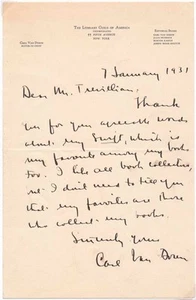 The Literary Guild of America
New York
7 January 1931
Dear Mr. Trevillian:
Thank
you for your agreeable words
about my Swift, which is
my favorite among my books
too. I like all book collectors,
but I don't need to tell you
that my favorites are those
who collect my books.
Sincerely yours
Carl Van Doren